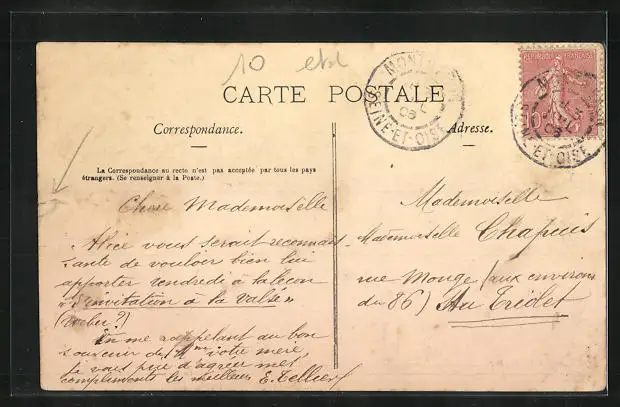 10
CARTE POSTALE
Correspondance.
Adresse.
La Correspondance au recto n'est pas acceptée par tous les pays
étrangers. (Se renseigner à la Poste.)
Chère Mademoiselle
Alice vous serait reconnais
sante de vouloir bien lui
apporter vendredi à la leçon
"l'invitation à la valse"
(Weber?)
En me rappelant au bon
souvenir de Mme votre mère,
je vous prie d'agréer mes
compliments les meilleurs E. Tellier
Mademoiselle
Mademoiselle Chapuis
rue Monge (aux environs
du 86) Au Tréolet
REPUBLIQUE FRANÇAISE
10c
MONT
08
SEINE-ET-OISE
08
SEINE-ET-OISE